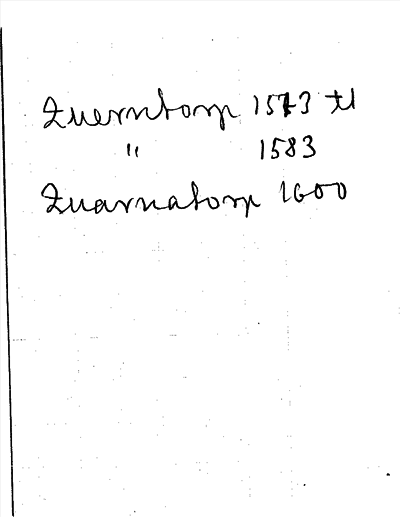 Querntorp 1573 tl
" 1583
Quarnatorp 1600